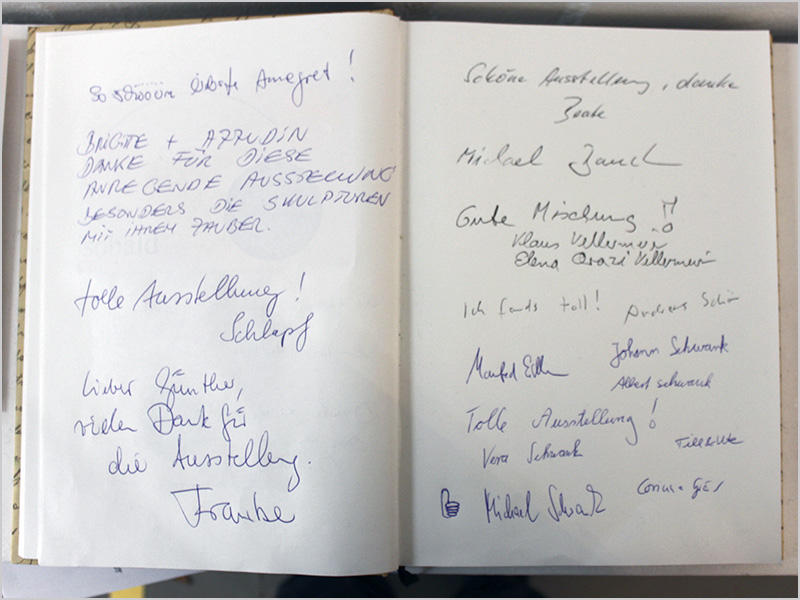 So Annegret!
BRIGITTE + AZZUDIN
DANKE FÜR DIESE
ANREGENDE AUSSTELLUNG
BESONDERS DIE SKULPTUREN
MIT IHREM ZAUBER.
tolle Ausstellung!
Schlapf
Lieber Günther,
vielen Dank für
die Ausstellung.
Frauke
Schöne Ausstellung, danke
Beate
Michael
Gute Mischung!!
Klaus Kellermeier
Elena Kellermeier
Ich fands toll! Andreas
Manfred
Johann Schwank
Albert Schwank
Tolle Ausstellung!
Vera Schwank
Michael Schwank